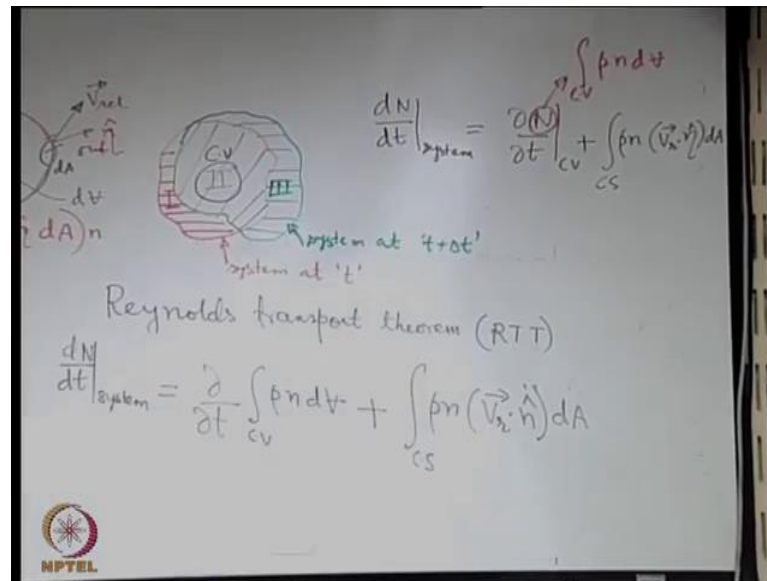 V⃗rel
n̂
dA
d∀
dA)n
C.V
I
II
III
system at 't+Δt'
system at 't'
dN/dt|system = ∂(N)/∂t|CV + ∫CS ρn (V⃗r·η̂)dA
∫CV ρn d∀
Reynolds transport theorem (RTT)
dN/dt|system = ∂/∂t ∫CV ρn d∀ + ∫CS ρn (V⃗r·n̂) dA
NPTEL